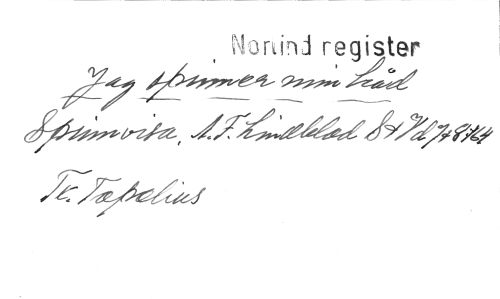 Norlind register
Jag spinner min tråd
Spinnvisa, A. F. Lindblad St Vd
Tc. Topelius